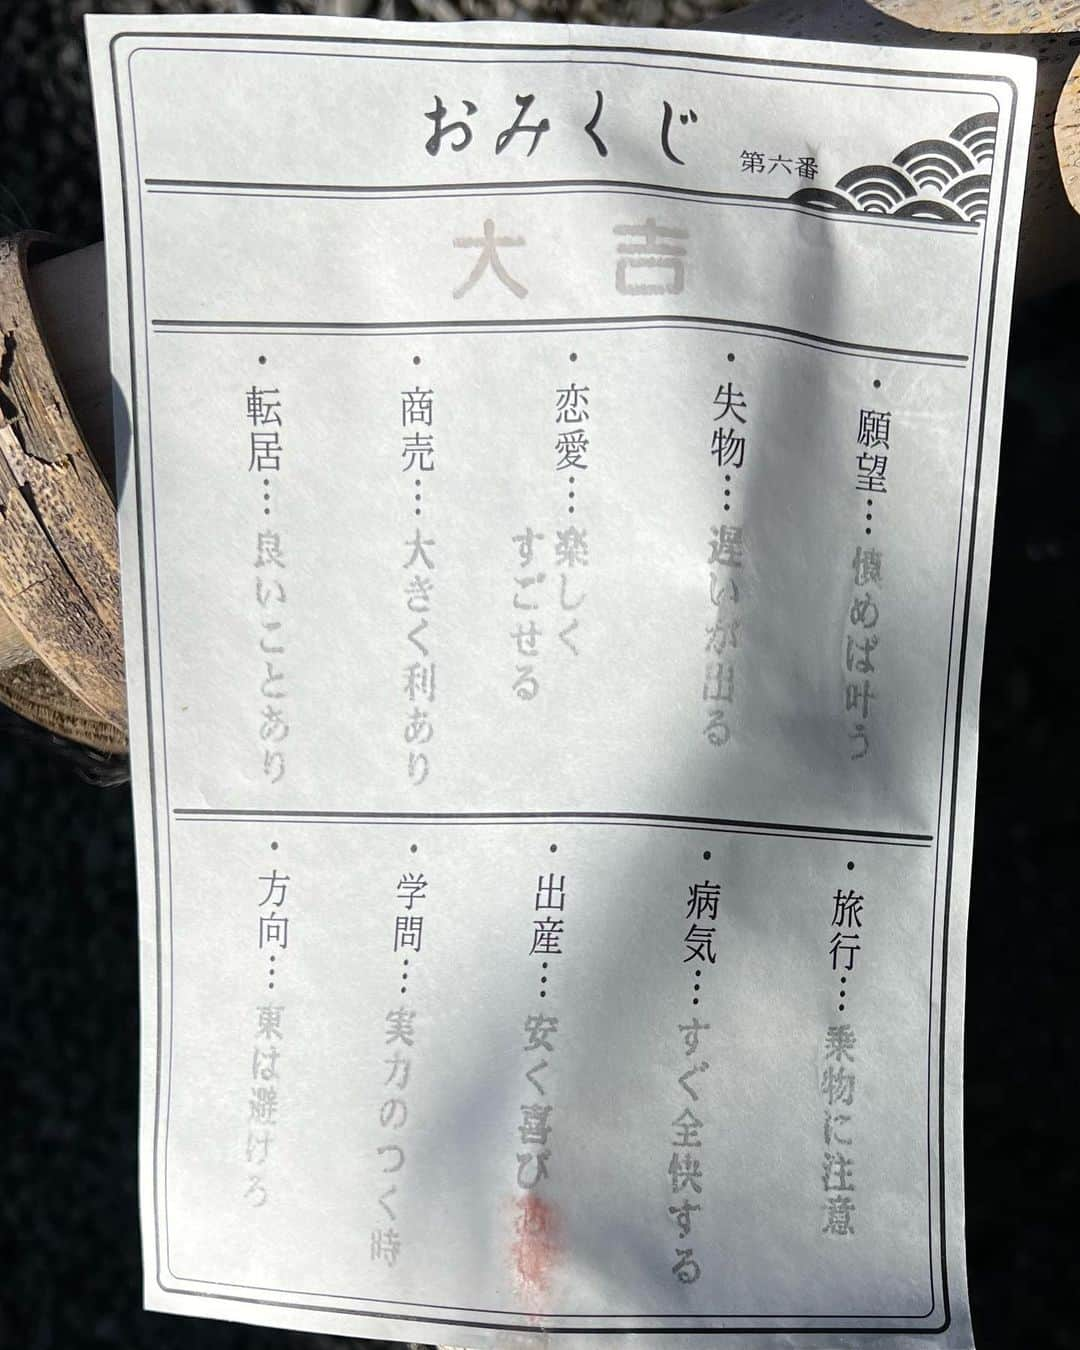 おみくじ
第六番
大吉
・願望…慎めば叶う
・失物…遅いが出る
・恋愛…楽しく
すごせる
・商売…大きく利あり
・転居…良いことあり
・旅行…乗物に注意
・病気…すぐ全快する
・出産…安く喜びあり
・学問…実力のつく時
・方向…東は避けろ